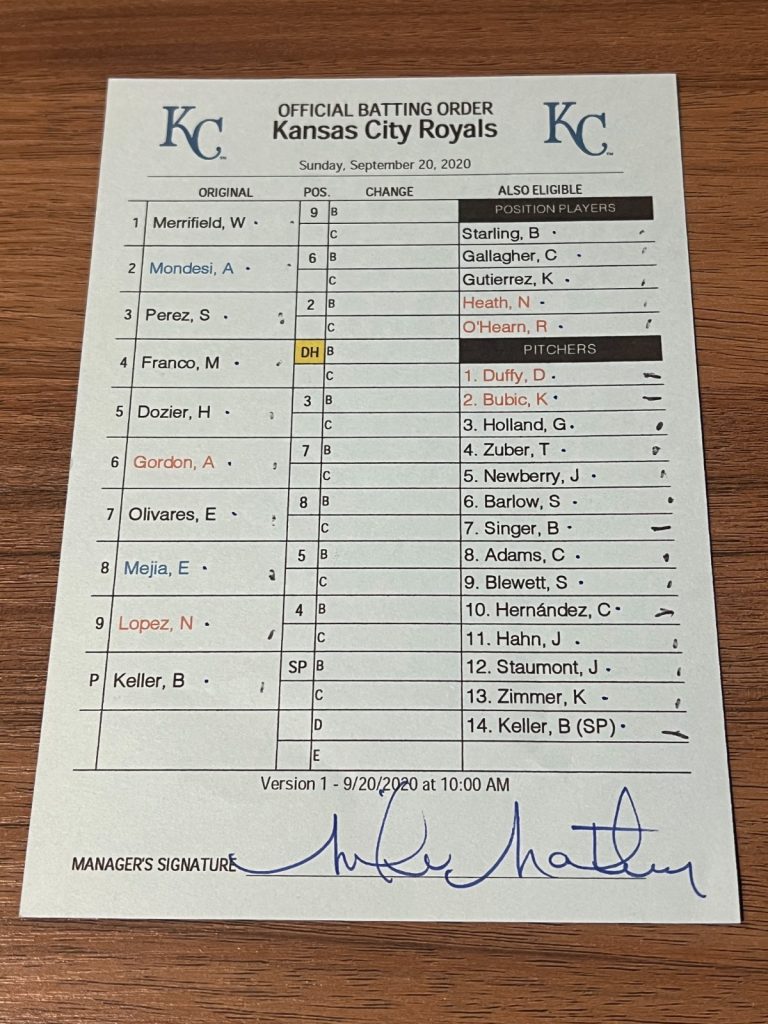 KC OFFICIAL BATTING ORDER KC
Kansas City Royals
Sunday, September 20, 2020
ORIGINAL POS. CHANGE ALSO ELIGIBLE
1 Merrifield, W 9 B POSITION PLAYERS
C Starling, B
2 Mondesi, A 6 B Gallagher, C
C Gutierrez, K
3 Perez, S 2 B Heath, N
C O'Hearn, R
4 Franco, M DH B PITCHERS
C 1. Duffy, D
5 Dozier, H 3 B 2. Bubic, K
C 3. Holland, G
6 Gordon, A 7 B 4. Zuber, T
C 5. Newberry, J
7 Olivares, E 8 B 6. Barlow, S
C 7. Singer, B
8 Mejia, E 5 B 8. Adams, C
C 9. Blewett, S
9 Lopez, N 4 B 10. Hernández, C
C 11. Hahn, J
P Keller, B SP B 12. Staumont, J
C 13. Zimmer, K
D 14. Keller, B (SP)
E
Version 1 - 9/20/2020 at 10:00 AM
MANAGER'S SIGNATURE Mike Matheny